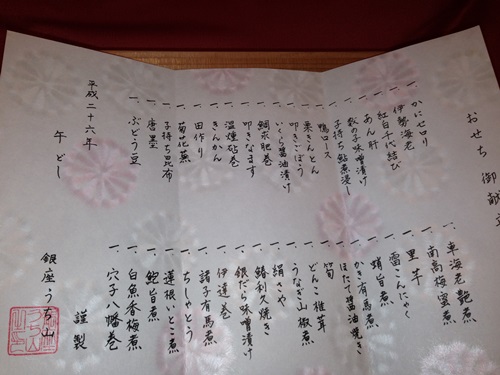 おせち 御献立
一、かにゼロリ
一、伊勢海老
一、紅白千代結び
一、あん肝
一、数の子味噌漬け
一、子持ち鮎煮浸し
一、鴨ロース
一、栗きんとん
一、叩きごぼう
一、いくら醤油漬け
一、鯛求肥巻
一、叩きなます
一、温燻砧巻
一、きんかん
一、田作り
一、菊花蕪
一、子持ち昆布
一、唐墨
一、ぶどう豆
一、車海老 艶煮
一、南高梅蜜煮
一、里芋
一、雷こんにゃく
一、蛸旨煮
一、かき有馬煮
一、ほたて醤油焼き
一、筍
一、どんこ椎茸
一、うなぎ山椒煮
一、絹さや
一、鰆利久焼き
一、銀だら味噌漬け
一、伊達巻
一、諸子有馬煮
一、ちしゃとう
一、蓮根いとこ煮
一、鮑旨煮
一、白魚春梅煮
一、穴子八幡巻
平成二十六年
午どし
謹製
銀座うち山